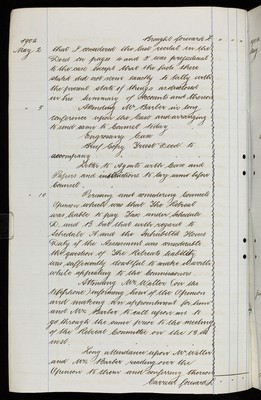 1902 Brought forward £
May 2 that I considered the last recital in the
Deed on pages 4 and 5 was prejudicial
to the case except that the facts there
stated did not seem exactly to tally with
the present state of things as disclosed
in his Summary of Accounts and thereon
" 5 Attending Mr Barter in long
conference upon the Case and arranging
to send same to Counsel today
Engrossing Case
Brief Copy Trust Deed to
accompany
Letter to Agents with Case and
Papers and instructions to lay same before
Counsel
" 10 Perusing and considering Counsel's
Opinion which was that The Retreat
was liable to pay Tax under Schedule
D. and B but that with regard to
Schedule A and the Inhabited House
Duty if the Assessment was considerable
the question of The Retreat's liability
was sufficiently doubtful to make it worth
while appealing to the Commissioners
Attending Mr Waller (on the
telephone) informing him of the Opinion
and making an appointment for him
and Mr Barter to call upon us to
go through the same prior to the meeting
of the Retreat Committee on the
inst
Long attendance upon Mr Waller
and Mr Barter reading over the
Opinion to them and conferring thereon
Carried forward £